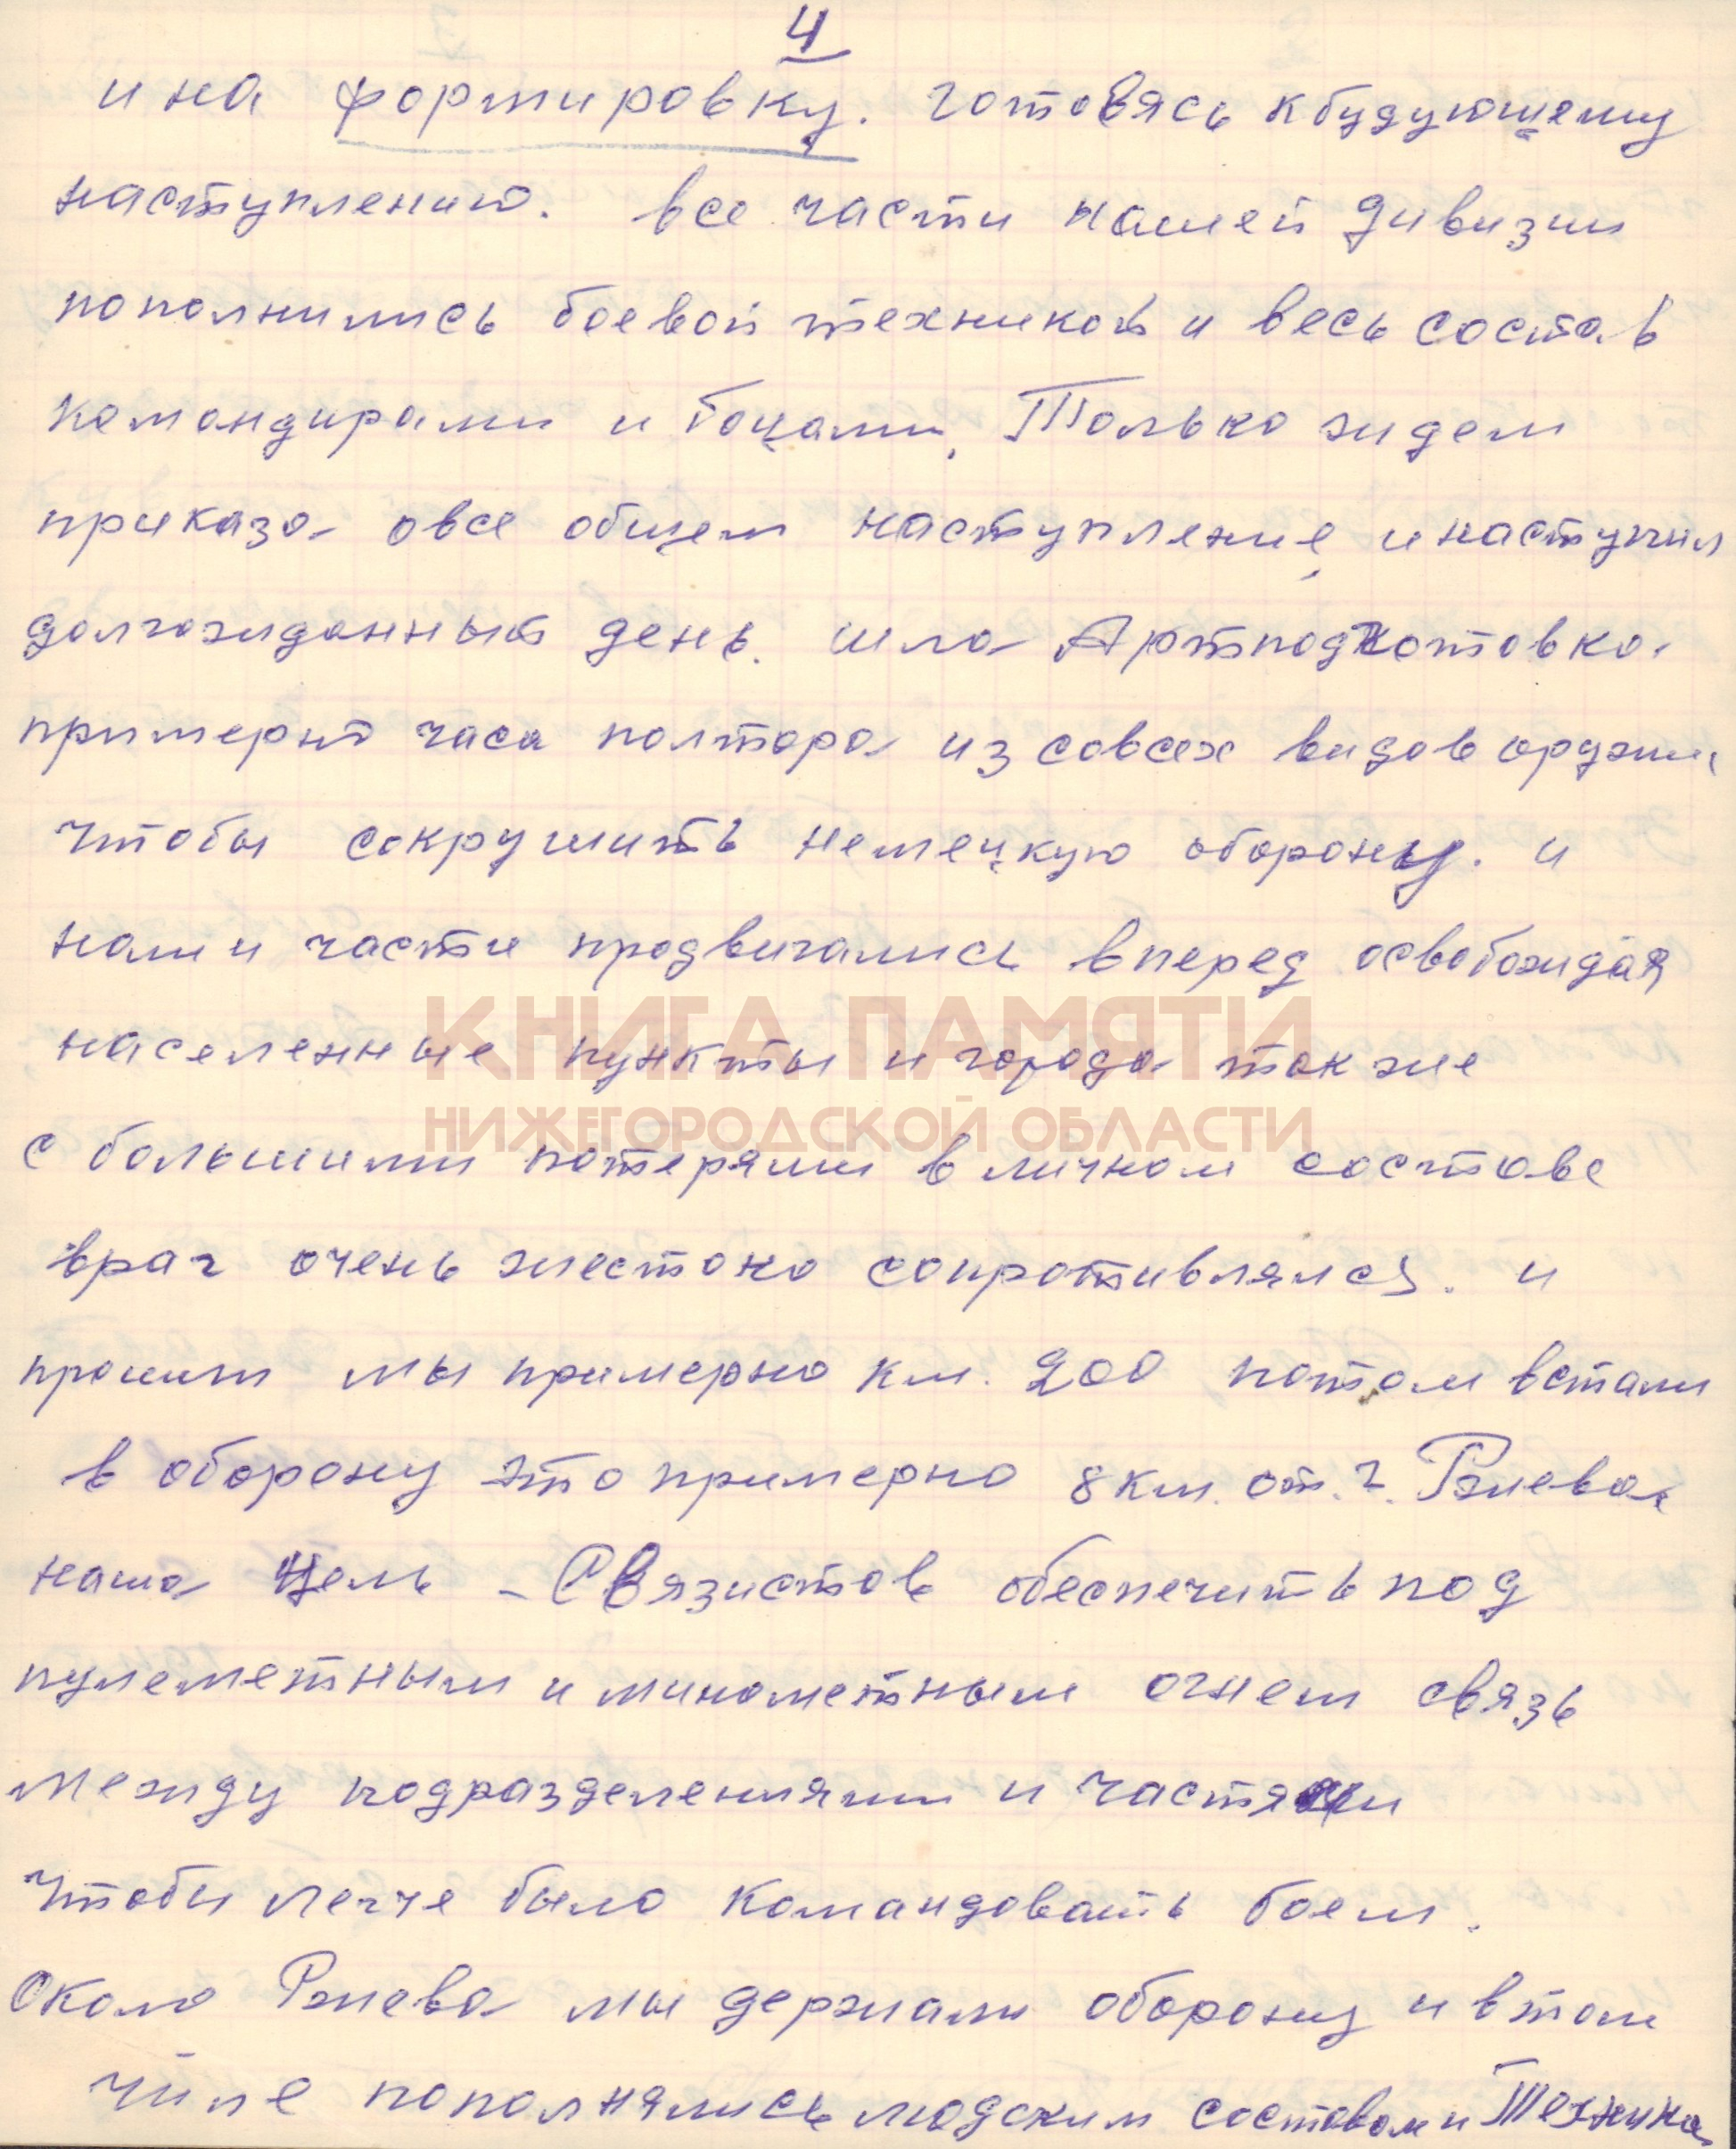 4
и на формировку. готовясь к будующему
наступлению. все части нашей дивизии
пополнились боевой техникой и весь состав
командирами и боцами, Только ждем
приказа о все общем наступление, и наступил
долгожиданный день. шла Артподготовка
примерно часа полтора из совсех видов оружия
чтобы сокрушить немецкую оборону. и
наши части продвигались вперед освобождая
населенные пункты и города также
КНИГА ПАМЯТИ
НИЖЕГОРОДСКОЙ ОБЛАСТИ
с большими потерями в личном составе
враг очень жестоко сопротивлялся. и
прошли мы примерно км. 200 потом встали
в оборону это примерно 8 км. от. г. Ржева.
наша цель - Связистов обеспечить под
пулеметным и минометным огнем связь
между подразделениями и частями
чтобы легче было командовать боем.
Около Ржева мы держали оборону и в том
числе пополнялись людским составом и Техника